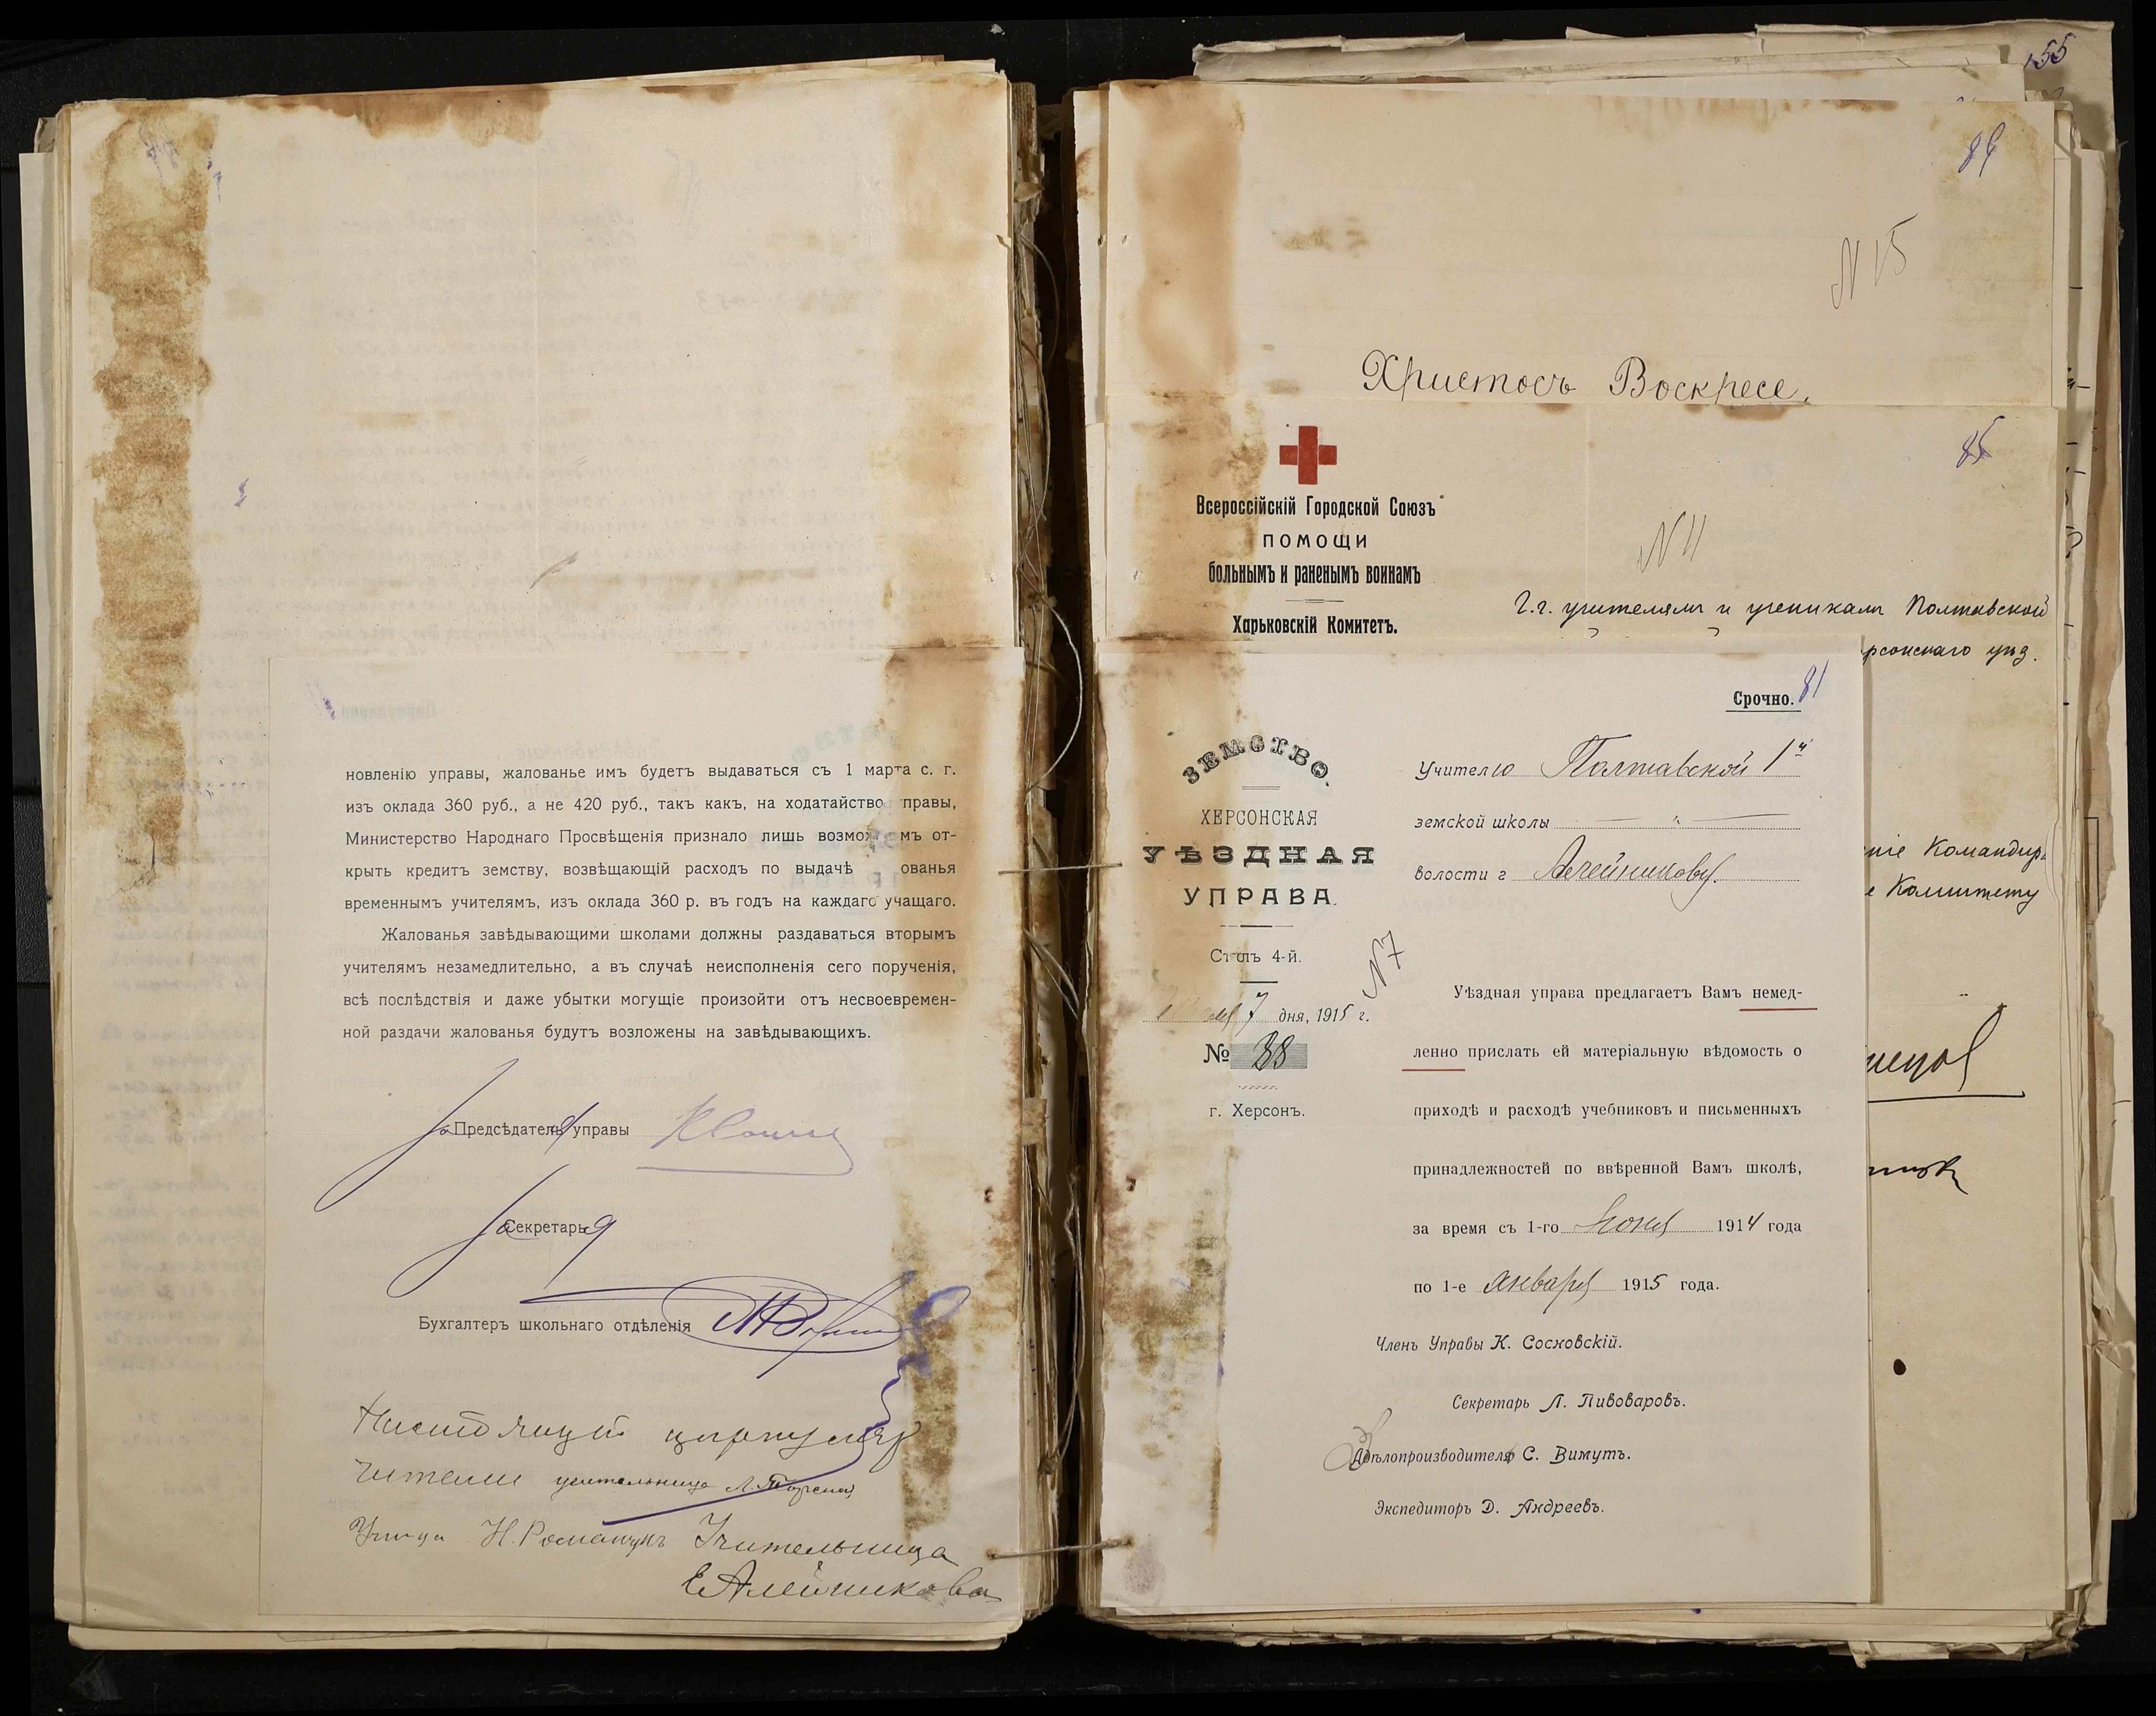 новленію управы, жалованье имъ будетъ выдаваться съ 1 марта с. г.
изъ оклада 360 руб., а не 420 руб., такъ какъ, на ходатайство правы,
Министерство Народнаго Просвѣщенія признало лишь возмо мъ от-
крыть кредитъ земству, возвѣщающій расходъ по выдачѣ ованья
временнымъ учителямъ, изъ оклада 360 р. въ годъ на каждаго учащаго.
Жалованья завѣдывающими школами должны раздаваться вторымъ
учителямъ незамедлительно, а въ случаѣ неисполненія сего порученія,
всѣ послѣдствія и даже убытки могущіе произойти отъ несвоевремен-
ной раздачи жалованья будутъ возложены на завѣдывающихъ.
За Предсѣдателя управы
За Секретаря
Бухгалтеръ школьнаго отдѣленія
Настоящій циркуляр
читали учительница Л.
Уч-ца Н. Романчукъ Учительница
Е Алейникова
155
84
N 15
Христосъ Воскресе.
85
Всероссійскій Городской Союзъ
ПОМОЩИ
больнымъ и раненымъ воинамъ
Харьковскій Комитетъ.
N 11
Г.г. учителямъ и ученикамъ Полтавской
рсонскаго уѣз.
ніе Командир
е Комитету
81
Срочно.
ЗЕМСТВО.
ХЕРСОНСКАЯ
УѢЗДНАЯ
УПРАВА.
Столъ 4-й.
7 дня, 1915 г.
№ 38
г. Херсонъ.
N 7
Учителю Полтавской 1й
земской школы "
волости г Алейникову.
Уѣздная управа предлагаетъ Вамъ немед-
ленно прислать ей матеріальную вѣдомость о
приходѣ и расходѣ учебниковъ и письменныхъ
принадлежностей по ввѣренной Вамъ школѣ,
за время съ 1-го Іюня 1914 года
по 1-е Января 1915 года.
Членъ Управы К. Сосновскій.
Секретарь Л. Пивоваровъ.
За Дѣлопроизводителя С. Вимутъ.
Экспедиторъ Д. Андреевъ.